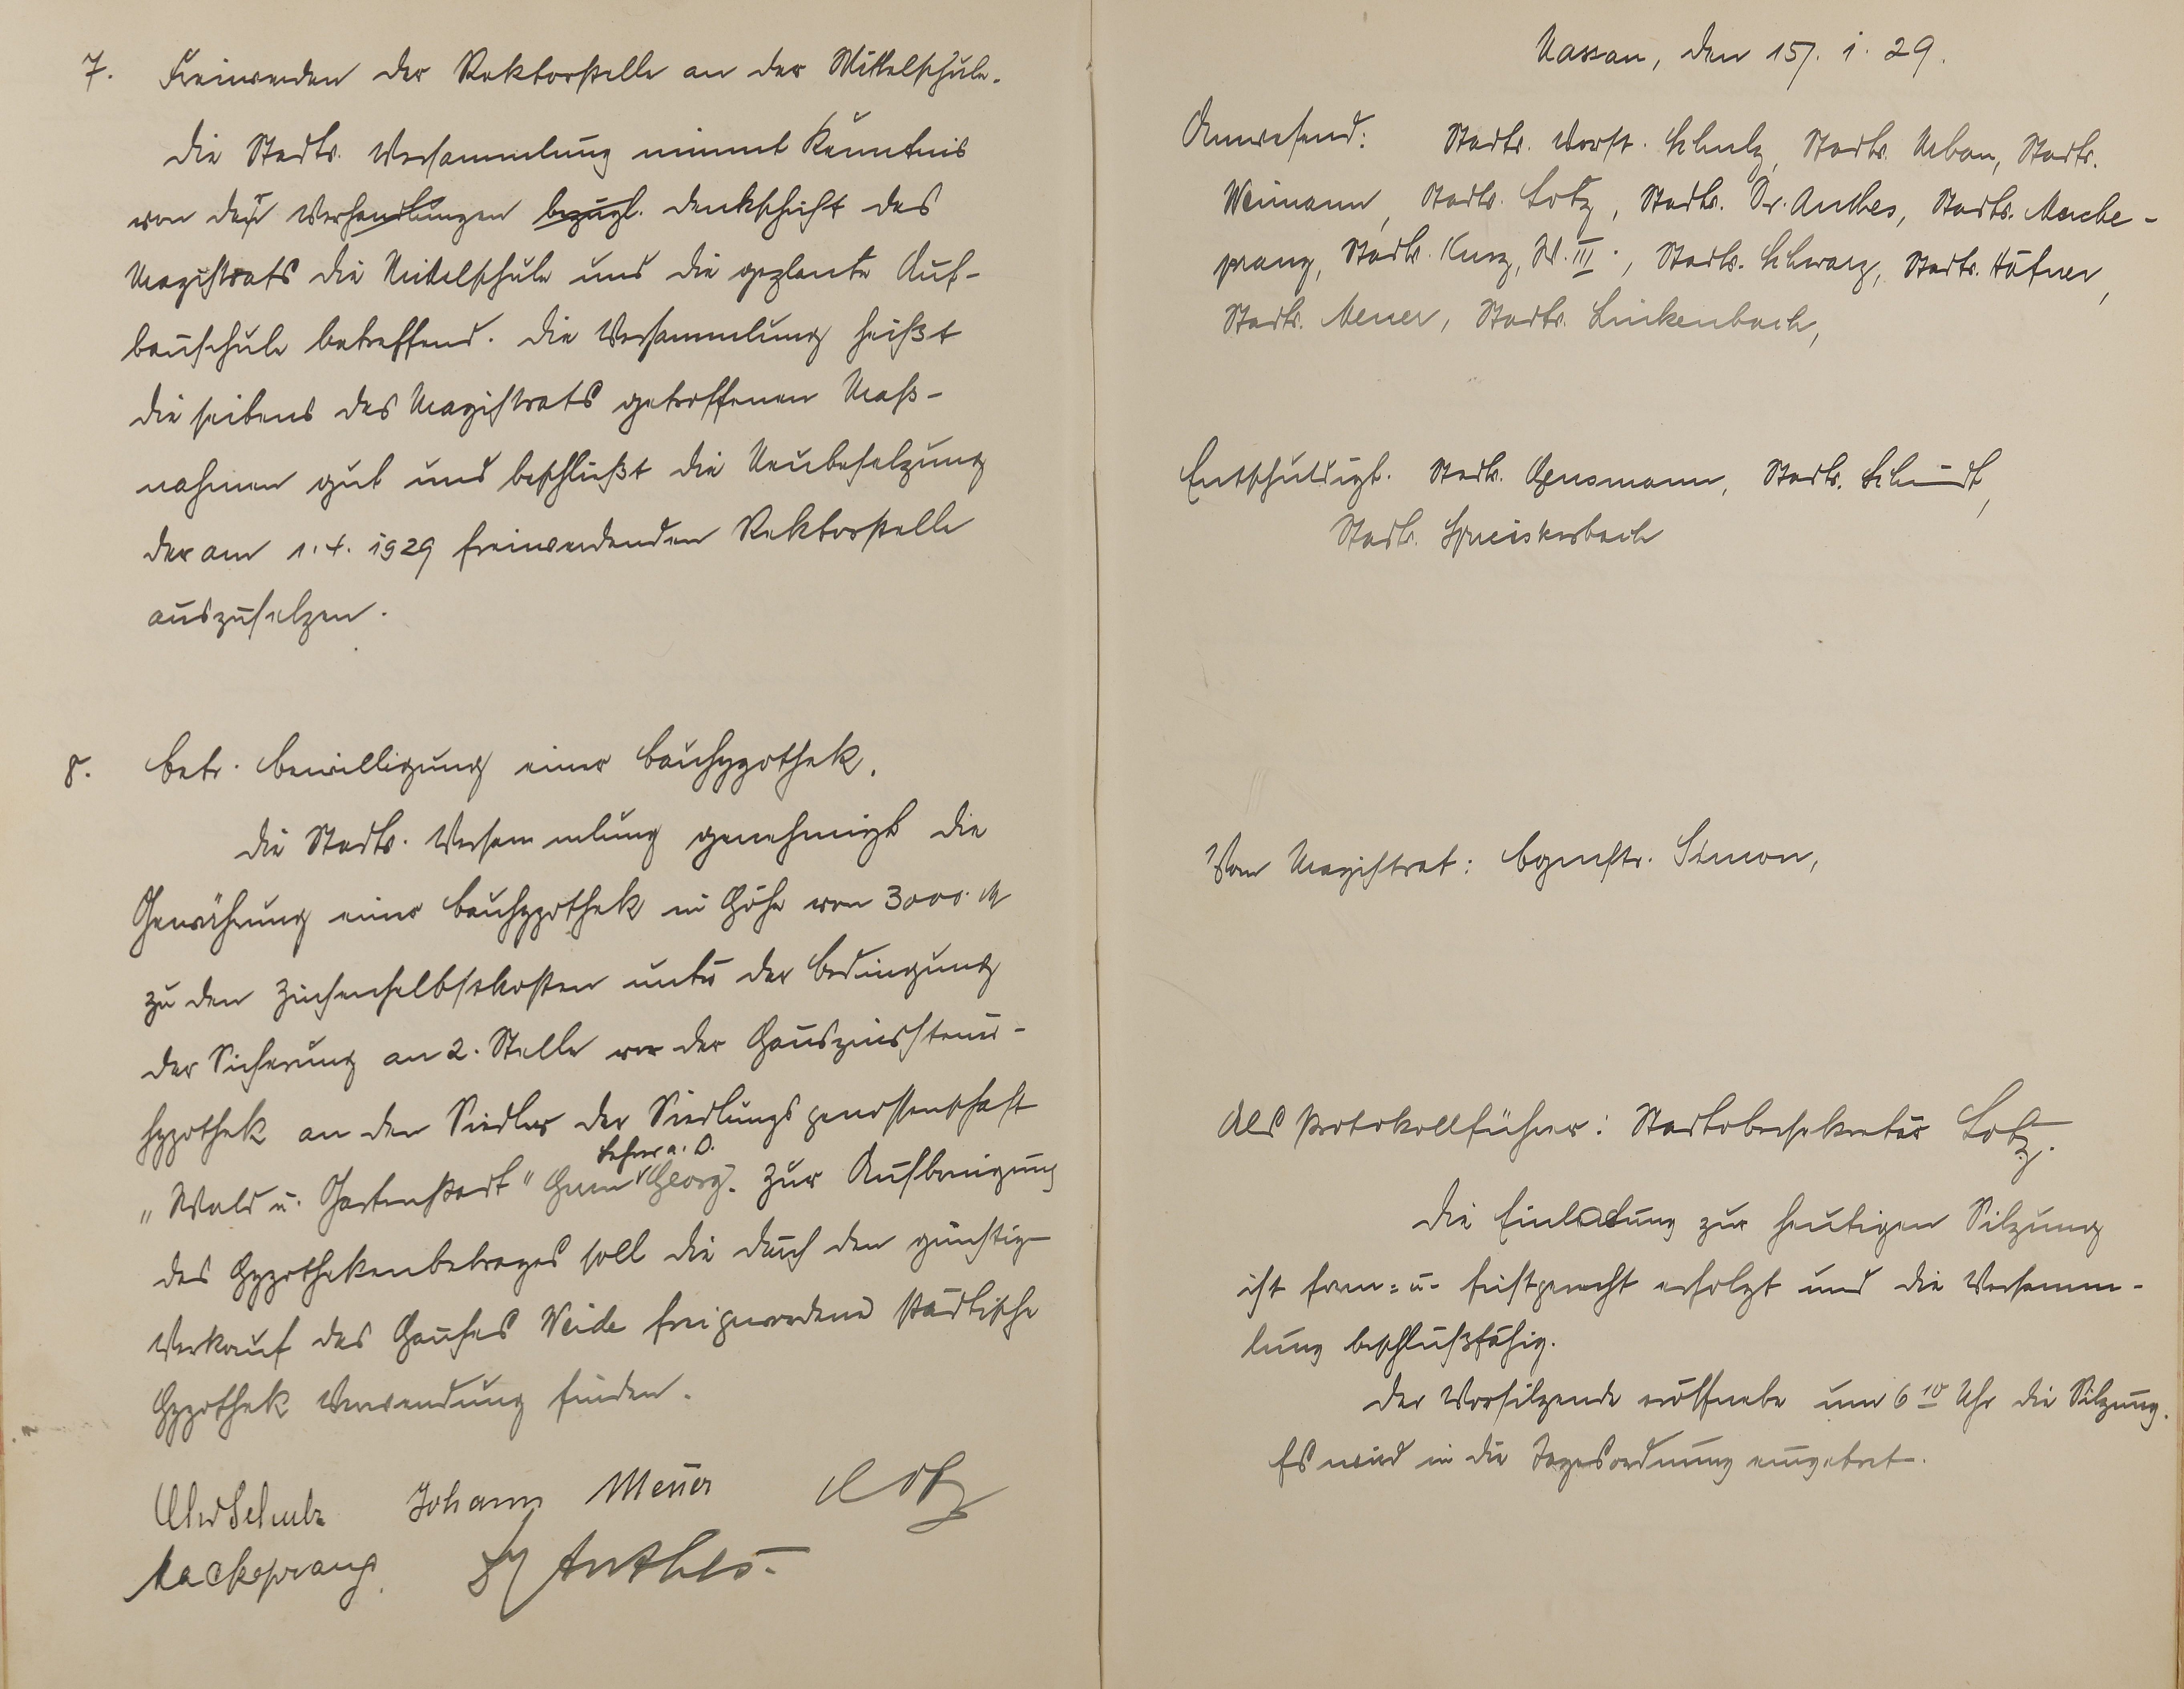 7. Freiwerden der Rektorstelle an der Mittelschule.
Die Stadtv. Versammlung nimmt Kenntnis
von der Verhandlungen bezügl. Denkschrift des
Magistrats die Mittelschule und die geplante Auf-
bauschule betreffend. Die Versammlung heißt
die seitens des Magistrats getroffenen Maß-
nahmen gut und beschließt die Neubesetzung
der am 1.4. 1929 freiwerdenden Rektorstelle
auszusetzen.
8. Betr. Bewilligung einer Bauhypothek.
Die Stadtv. Versammlung genehmigt die
Gewährung einer Bauhypothek in Höhe von 3000 M
zu den Zinsenselbstkosten unter der Bedingung
der Sicherung an 2. Stelle vor der Hauszinssteuer-
hypothek an den Siedler der Siedlungsgenossenschaft
Lehrer a. D.
„Wald u. Gartenstadt" Herrn Georg. Zur Aufbringung
des Hypothekenbetrages soll die durch den günstig
Verkauf des Hauses Weide freigewordene städtische
Hypothek Verwendung finden.
Schulz Johann Meuer Lotz
Mackeprang Dr Anthes
Nassau, den 15. 1. 29.
Anwesend: Stadtv. Vorst. Schulz, Stadtv. Urban, Stadtv.
Weimann, Stadtv. Lotz, Stadtv. Dr. Anthes, Stadtv. Macke-
prang, Stadtv. Kurz, W. III., Stadtv. Schwarz, Stadtv. Häfner,
Stadtv. Meuer, Stadtv. Linkenbach,
Entschuldigt. Stadtv. Stadtv. Schmidt,
Stadtv. Spreiskerbach
Vom Magistrat: Bgmstr. Simon,
Als Protokollführer: Stadtobersekretär Lotz.
Die Einladung zur heutigen Sitzung
ist form- u. fristgerecht erfolgt und die Versamm-
lung beschlußfähig.
Der Vorsitzende eröffnete um 6 10 Uhr die Sitzung.
Es wird in die Tagesordnung eingetret.